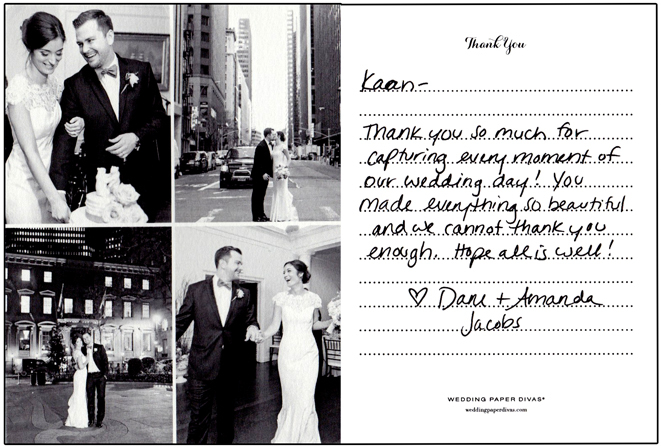 Thank You
Kaan-
Thank you so much for
capturing every moment of
our wedding day! You
made everything so beautiful
and we cannot thank you
enough. Hope all is well!
♡ Dane + Amanda
Jacobs
WEDDING PAPER DIVAS®
weddingpaperdivas.com